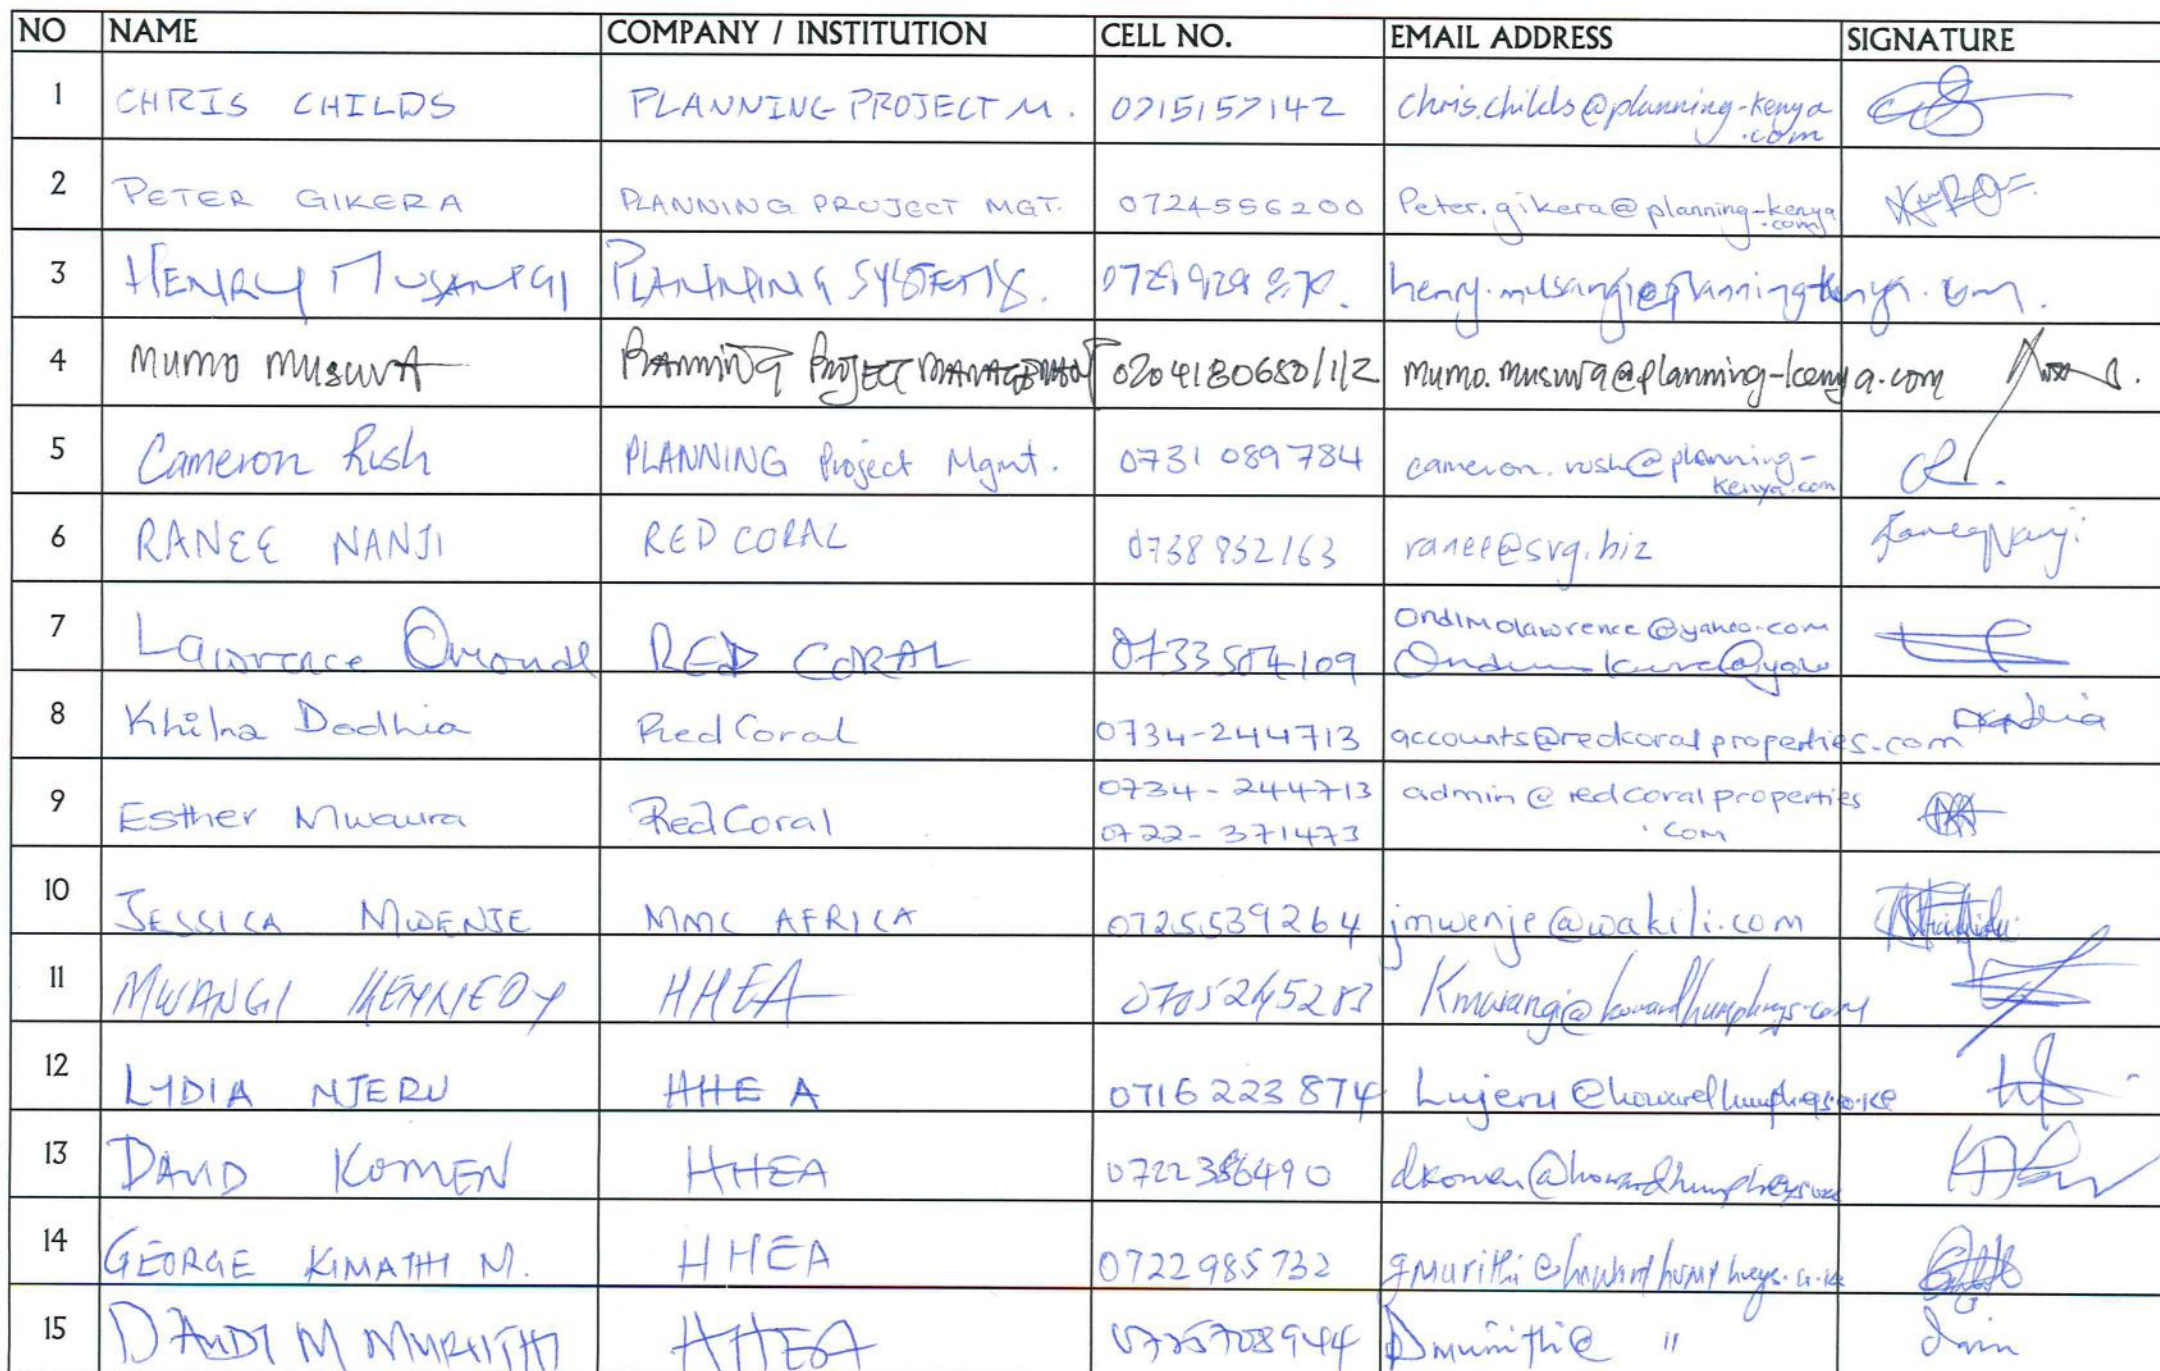 NO NAME COMPANY / INSTITUTION CELL NO. EMAIL ADDRESS SIGNATURE
1 CHRIS CHILDS PLANNING PROJECT M. 0715157142 chris.childs@planning-kenya
.com
2 PETER GIKERA PLANNING PROJECT MGT. 0724556200 Peter.gikera@planning-kenya
.com
3 HENRY MUSANGI PLANNING SYSTEMS.
4 MUMO MUSUVA PLANNING PROJECT MANAGEMENT 0204180680/1/2 mumo.musuva@planning-kenya.com
5 Cameron Rush PLANNING Project Mgmt. 0731 089784 cameron.rush@planning-
kenya.com
6 RANEE NANJI RED CORAL 0738 832163 ranee@svg.biz
7 Lawrence RED CORAL 0733504109 Ondimolawrence@yahoo.com
8 Khilna Dodhia Red Coral 0734-244713 accounts@redcoralproperties.com
9 Esther Mwaura Red Coral 0734-244713 admin@redcoralproperties
0722-371473 .com
10 JESSICA MWENJE MMC AFRICA 0725539264 jmwenje@wakili.com
11 MWANGI KENNEDY HHEA 0705245283 Kmwangi@howardhumphreys.com
12 LYDIA NJERU HHEA 0716 223 874
13 DAVID KOMEN HHEA 0722386490
14 GEORGE KIMATHI M. HHEA 0722985732
15 M MURIITHI HHEA "